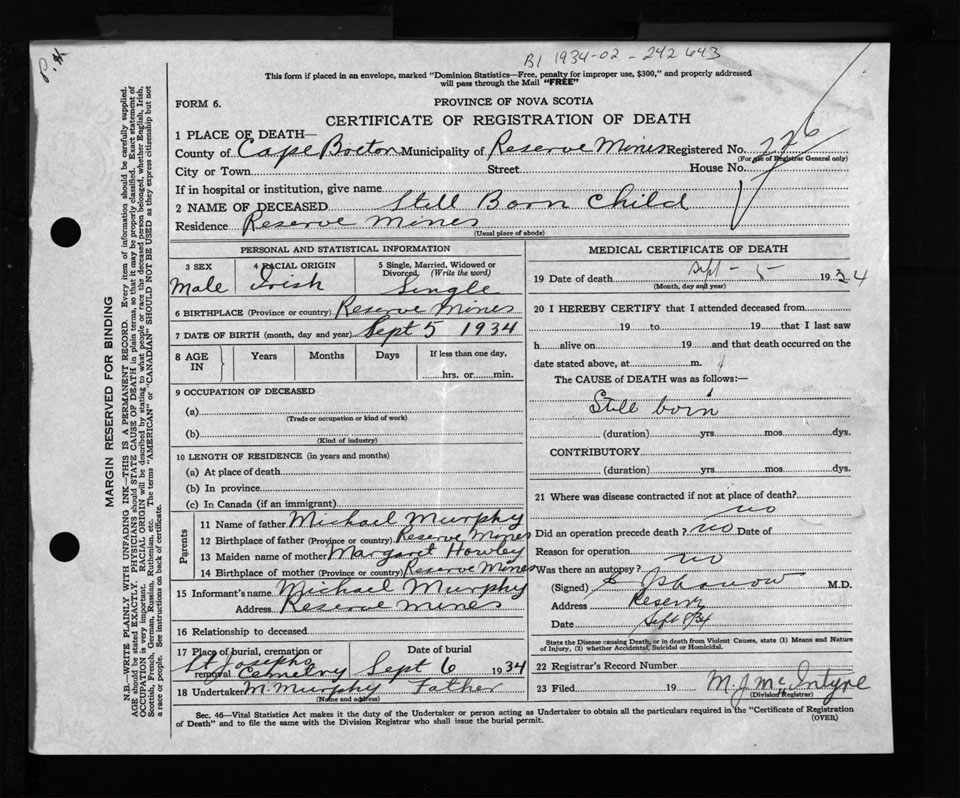 P.H.
B1 1934-02-242643
This form if placed in an envelope, marked "Dominion Statistics—Free, penalty for improper use, $300," and properly addressed
will pass through the Mail "FREE"
FORM 6.
PROVINCE OF NOVA SCOTIA
CERTIFICATE OF REGISTRATION OF DEATH
1 PLACE OF DEATH—
County of Cape Breton Municipality of Reserve Mines Registered No. 226
(For use of Registrar General only)
City or Town Street House No.
If in hospital or institution, give name
2 NAME OF DECEASED Still Born Child
Residence Reserve Mines
(Usual place of abode)
PERSONAL AND STATISTICAL INFORMATION
3 SEX 4 RACIAL ORIGIN 5 Single, Married, Widowed or
Divorced, (Write the word)
Male Irish Single
6 BIRTHPLACE (Province or country) Reserve Mines
7 DATE OF BIRTH (month, day and year) Sept 5 1934
8 AGE IN Years Months Days If less than one day,
hrs. or min.
9 OCCUPATION OF DECEASED
(a)
(Trade or occupation or kind of work)
(b)
(Kind of industry)
10 LENGTH OF RESIDENCE (in years and months)
(a) At place of death
(b) In province
(c) In Canada (if an immigrant)
Parents
11 Name of father Michael Murphy
12 Birthplace of father (Province or country) Reserve Mines
13 Maiden name of mother Margaret Howley
14 Birthplace of mother (Province or country) Reserve Mines
15 Informant's name Michael Murphy
Address Reserve Mines
16 Relationship to deceased
17 Place of burial, cremation or Date of burial
St Josephs
removal Cemetry Sept 6 1934
18 Undertaker M. Murphy Father
(Name and address)
MEDICAL CERTIFICATE OF DEATH
19 Date of death Sept - 5 1934
(Month, day and year)
20 I HEREBY CERTIFY that I attended deceased from
19 to 19 that I last saw
h alive on 19 and that death occurred on the
date stated above, at m.
The CAUSE of DEATH was as follows:—
Still born
(duration) yrs. mos. dys.
CONTRIBUTORY
(duration) yrs. mos. dys.
21 Where was disease contracted if not at place of death?
no
Did an operation precede death? no Date of
Reason for operation
no
Was there an autopsy?
(Signed) M.D.
Address Reserve
Date Sept 8/34
State the Disease causing Death, or in death from Violent Causes, state (1) Means and Nature
of Injury, (2) whether Accidental, Suicidal or Homicidal.
22 Registrar's Record Number
23 Filed 19 M. J. McIntyre
(Division Registrar)
Sec. 46—Vital Statistics Act makes it the duty of the Undertaker or person acting as Undertaker to obtain all the particulars required in the "Certificate of Registration
of Death" and to file the same with the Division Registrar who shall issue the burial permit.
(OVER)
MARGIN RESERVED FOR BINDING
N.B.—WRITE PLAINLY WITH UNFADING INK—THIS IS A PERMANENT RECORD. Every item of information should be carefully supplied.
AGE should be stated EXACTLY. PHYSICIANS should STATE CAUSE OF DEATH in plain terms, so that it may be properly classified. Exact statement of
OCCUPATION is very important. RACIAL ORIGIN will be described by stating to what people or race the deceased person belonged, whether English, Irish,
Scottish, French, German, Russian, Ruthenian, etc. The terms "AMERICAN" or "CANADIAN" SHOULD NOT BE USED as they express citizenship but not
a race or people. See instructions on back of certificate.